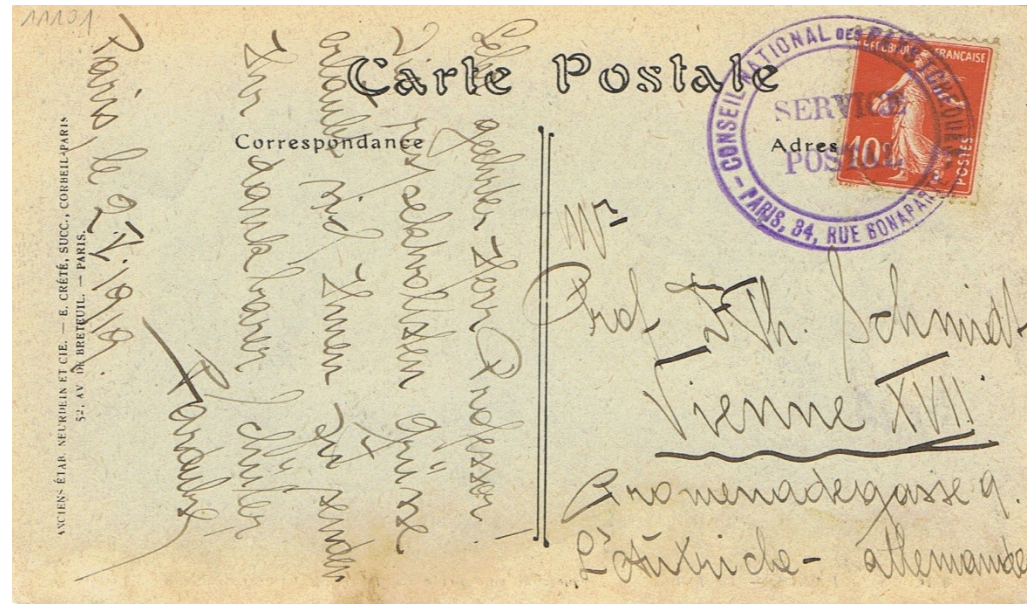 11101
Carte Postale
Correspondance
Adres
CONSEIL NATIONAL DES PAYS TCHÈQUES
— PARIS, 84, RUE BONAPARTE
SERVICE
POSTAL
REPUBLIQUE FRANÇAISE
10
POSTES
ANCIENS ÉTAB. NEURDEIN ET CIE. — E. CRÉTÉ, SUCC., CORBEIL-PARIS
52, AV. DE BRETEUIL. — PARIS.
Paris, le 2. V. 1919.
Sehr geehrter Herr Professor!
Die respektvollsten Grüsse
erlaubt sich Ihnen zu senden
Ihr dankbarer Schüler
Mr
Prof. Th. Schmidt
Vienne XVII
Promenadegasse 9.
L'Autriche - allemande